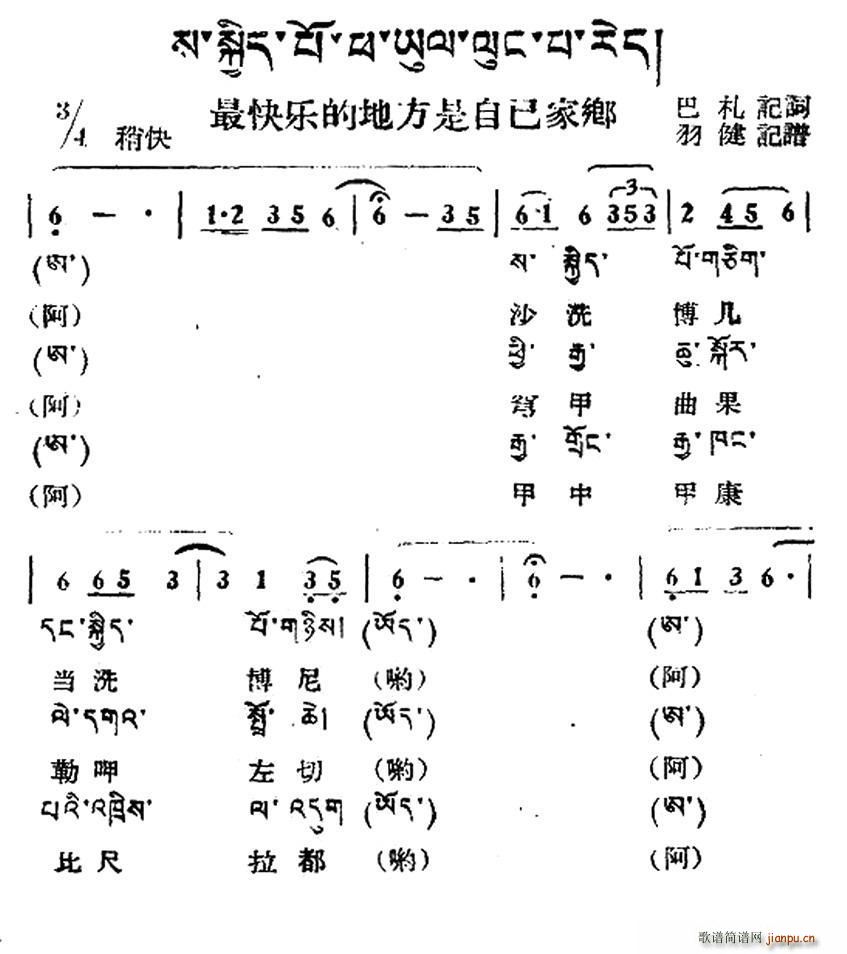 ས་སྐྱིད་པོ་ཕ་ཡུལ་ལུང་པ་རེད།
3/4 稍快 最快乐的地方是自己家鄉 巴札記詞
羽健記譜
| 6 – · | 1·2 35 6 | 6 – 35 | 6·1 6 353 | 2 45 6 |
(ཨ་) ས་སྐྱིད་ པོ་གཅིག་
(阿) 沙洗 博几
(ཨ་) ཕྱི་རྒྱ་ ཆུ་སྐོར་
(阿) 甲 曲果
(ཨ་) རྒྱ་གྲོང་ རྒྱ་ཁང་
(阿) 甲中 甲康
| 6 65 3 | 3 1 35 | 6 – · | 6 – · | 61 3 6·
དང་སྐྱིད་ པོ་གཉིས། (ཡོད་) (ཨ་)
当洗 博尼 (哟) (阿)
ལེ་དགའ་ ཆེ། (ཡོད་) (ཨ་)
勒呷 左切 (哟) (阿)
པའི་འཁྲིས་ ལ་འདུག (ཡོད་) (ཨ་)
比尺 拉都 (哟) (阿)
歌谱简谱网 jianpu.cn